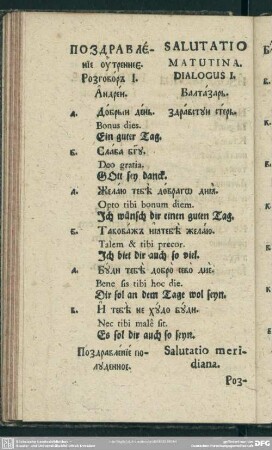 ПОЗДРАВЛЕ́-
нїе оу҆́тренне
Розгово́ръ І.
Андре́й.
SALUTATIO
MATUTINA.
DIALOGUS I.
Балта́заръ.
А. До́брый де́нь. здра́вствуй
Bonus dies.
Ein guter Tag.
Б. Сла́ва бг҃у.
Deo gratia.
GOtt sey danck.
А. Жела́ю тебѣ̀ до́брагѡ днѧ̀.
Opto tibi bonum diem.
Ich wünsch dir einen guten Tag.
Б. жела́ю.
Talem & tibi precor.
Ich biet dir auch so viel.
А. Бу́ди тебѣ̀ добро̀
Bene sis tibi hoc die.
Dir sol an dem Tage wol seyn.
Б. И҆ тебѣ̀ не ху́до бу́ди.
Nec tibi malè sit.
Es sol dir auch so seyn.
Поздравле́нїе по-
лу́денное.
Salutatio meri-
diana.
Роз-